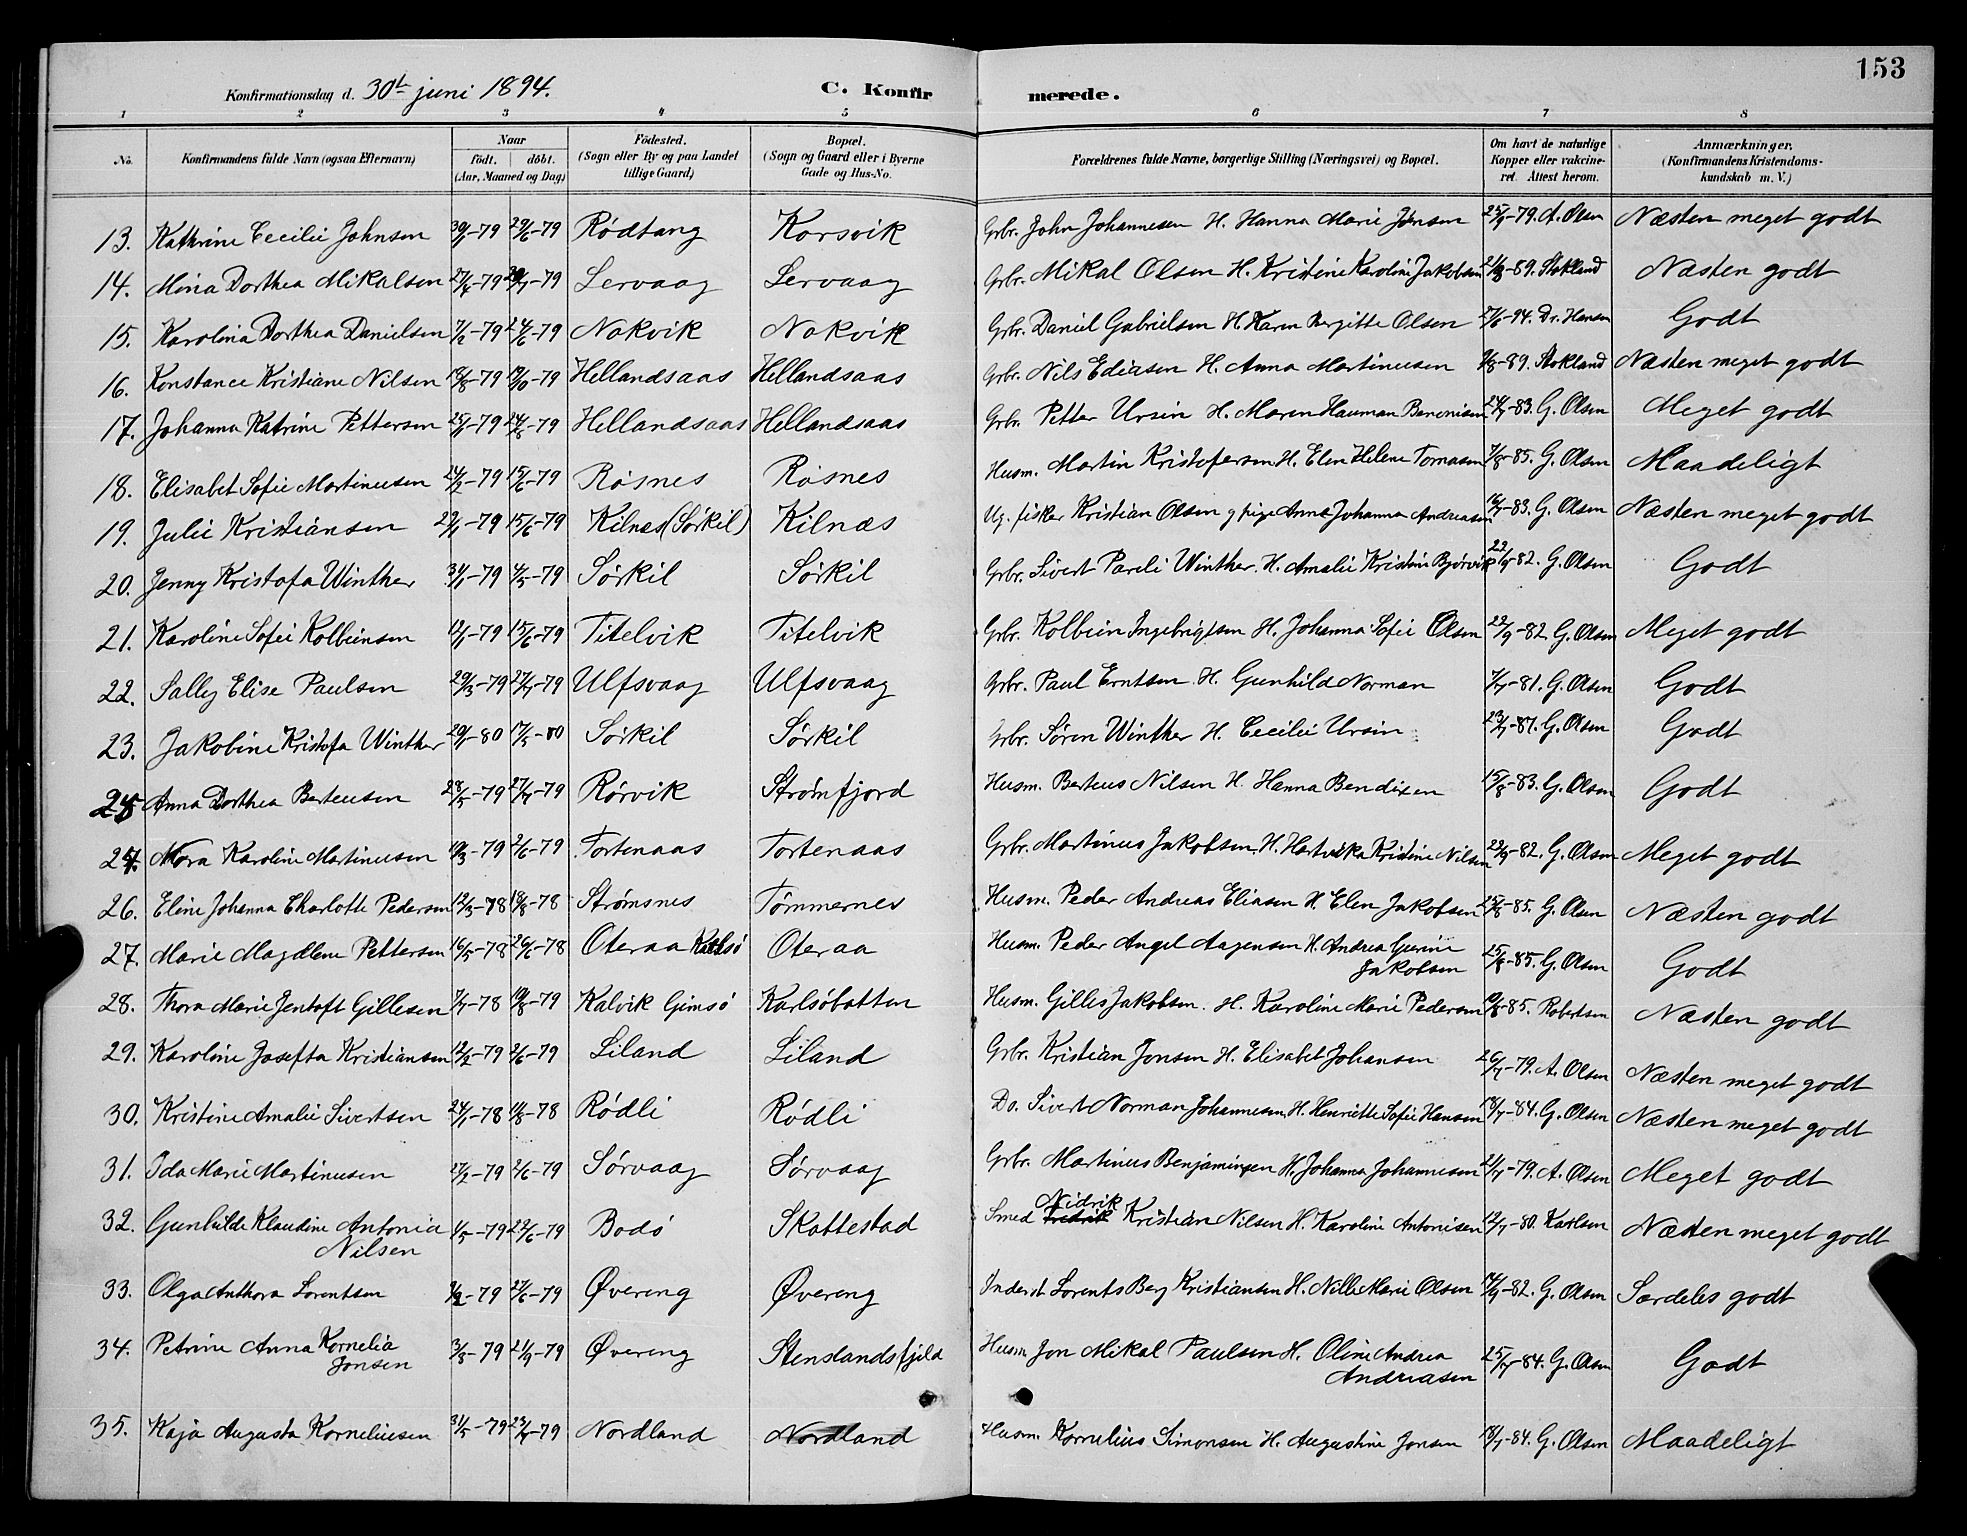 153
Konfirmationsdag d. 30te juni 1894. C. Konfirmerede.
1 2 3 4 5 6 7 8
No. Konfirmandens fulde Navn (ogsaa Efternavn) Naar födt. döbt. (Aar, Maaned og Dag) Födested. (Sogn eller By og paa Landet tillige Gaard) Bopæl. (Sogn og Gaard eller i Byerne Gade og Hus-No. Forældrenes fulde Navne, borgerlige Stilling (Næringsvei) og Bopæl. Om havt de naturlige Kopper eller vakcineret. Attest herom. Anmærkninger. (Konfirmandens Kristendomskundskab m. V.)
13. Kathrine Cecilie Johnsen -79 29/6-79 Rødtang Korsvik Grbr. John Johannesen H. Hanna Marie Jensen 25/9-79. A. Olsen Næsten meget godt
14. Mina Dorthea Mikalsen -79 -79 Lervaag Lervaag Grbr. Mikal Olsen H. Kristine Karoline Jakobsen -89. Stokland Næsten godt
15. Karolina Dorthea Danielsen 7/2-79 -79 Nokvik Nokvik Grbr. Daniel Gabrielsen H. Karen Bergitte Olsen 27/6-94. Dr. Hansen Godt
16. Konstance Kristiane Nilsen -79 -79 Hellandsaas Hellandsaas Grbr. Nils Ediasen H. Anna Martinussen -89. Stokland Næsten meget godt
17. Johanna Katrine Pettersen -79 24/8-79 Hellandsaas Hellandsaas Grbr. Petter Ursin H. Maren Hauman Benonisen -83. G. Olsen Meget godt
18. Elisabet Sofie Martinusen 24/2-79 15/6-79 Røsnes Røsnes Husm. Martin Kristofersen H. Elen Helene Tomasen 7/8-85. G. Olsen Maadeligt
19. Julie Kristiansen -79 15/6-79 Kilnæs (Sørkil) Kilnæs Ug. fisker Kristian Olsen og pige Anna Johanna Andreasen -83. G. Olsen Næsten meget godt
20. Jenny Kristofa Winther 31/1-79 4/5-79 Sørkil Sørkil Grbr. Sivert Pareli Winther H. Amalie Kristine Bjørvik 22/9-82. G. Olsen Godt
21. Karoline Sofie Kolbeinsen -79 15/6-79 Titelvik Titelvik Grbr. Kolbein Ingebrigtsen H. Johanna Sofie Olsen 22/9-82. G. Olsen Meget godt
22. Sally Elise Paulsen 29/3-79 27/7-79 Ulfsvaag Ulfsvaag Grbr. Paul Erntsen H. Gunhild Norman 7/7-81. G. Olsen Godt
23. Jakobine Kristofa Winther -80 17/5-80 Sørkil Sørkil Grbr. Søren Winther H. Cecilie Ursin G. Olsen Godt
25 Anna Dorthea Berteusen 28/5-79 27/7-79 Rørvik Strømfjord Husm. Berteus Nilsen H. Hanna Bendixen 15/8-83. G. Olsen Godt
24. Nora Karoline Martinusen 10/3-79 2/6-79 Tortenaas Tortenaas Grbr. Martinus Jakobsen H. Hartvika Kristine Nilsen 22/9-82. G. Olsen Meget godt
26. Eline Johanna Charlotte Pedersen 12/3-78 18/8-78 Strømsnes Tømmernes Husm. Peder Andreas Eliasen H. Elen Jakobsen 25/8-85. G. Olsen Næsten godt
27. Marie Magdlene Pettersen 16/5-78 26/6-78 Oteraa Karlsö Oteraa Husm. Peder Angel Aagensen H. Andrea Gurine
Jakobsen 25/8-85. G. Olsen Godt
28. Thora Marie Jentoft Gillesen 7/7-78 10/8-79 Kalvik Gimsö Karlsöbotten Husm. Gilles Jakobsen. H. Karoline Marie Pedersen -85. Robertsen Næsten godt
29. Karoline Josefta Kristiansen 12/2-79 2/6-79 Liland Liland Grbr. Kristian Jonsen H. Elisabet Johansen 26/7-79. A. Olsen Næsten meget godt
30. Kristine Amalie Sivertsen 24/1-78 11/8-78 Rødli Rødli Do. Sivert Norman Johannesen H. Henriette Sofie Hansen 18/7-84. G. Olsen Næsten meget godt
31. Ida Marie Martinusen 27/2-79 2/6-79 Sørvaag Sørvaag Grbr. Martinus Benjaminsen H. Johanna Johannesen 21/7-79. A. Olsen Meget godt
Nidrik
32. Gunhilde Klaudine Antonia 1/5-79 22/6-79 Bodø Skottestad Smed Fredrik Kristian Nilsen H. Karoline Antonisen 12/7-80. Karlsen Næsten meget godt
Nilsen
33. Olga Anthora Lorentsen -79 27/6-79 Øvereng Øvereng Inderst Lorents Berg Kristiansen H. Nille Marie Olsen 14/9-82. G. Olsen Særdeles godt
34. Petrine Anna Kornelia 3/8-79 21/9-79 Øvereng Stenslandsfjeld Husm Jon Mikal Paulsen H. Oline Andrea 25/7-84. G. Olsen Godt
Jonsen Andreasen
35. Kaja Augusta Korneliusen 31/5-79 -79 Nordland Nordland Husm. Kornelius Simonsen H. Augustine Jonsen 18/7-84. G. Olsen Maadeligt